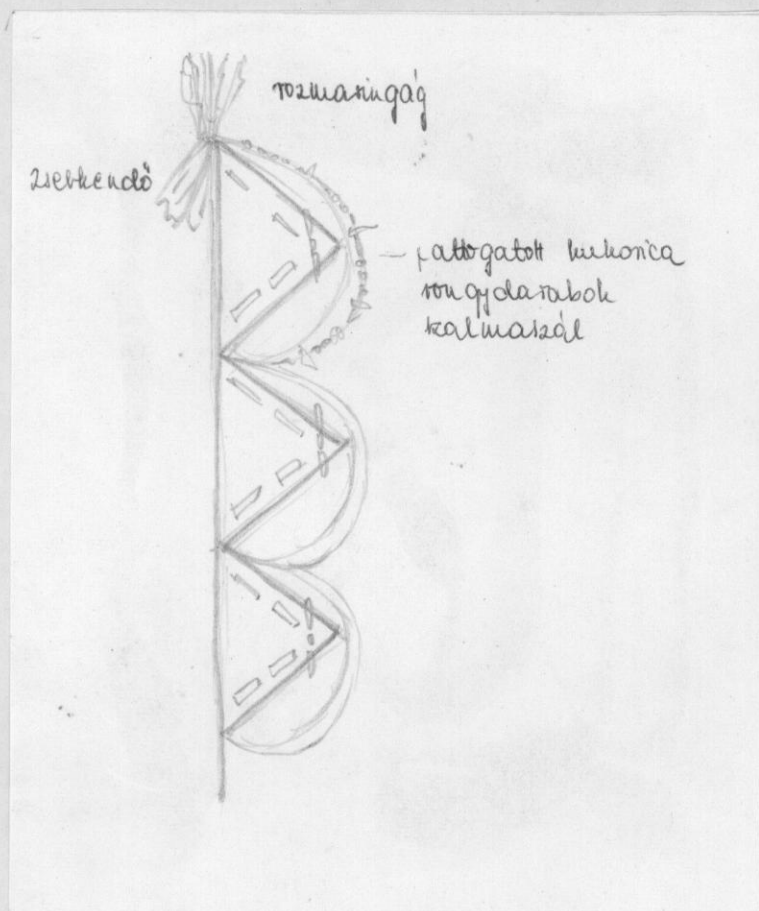 rozmaringág
zsebkendő
pattogatott kukorica
rongydarabok
szalmaszál